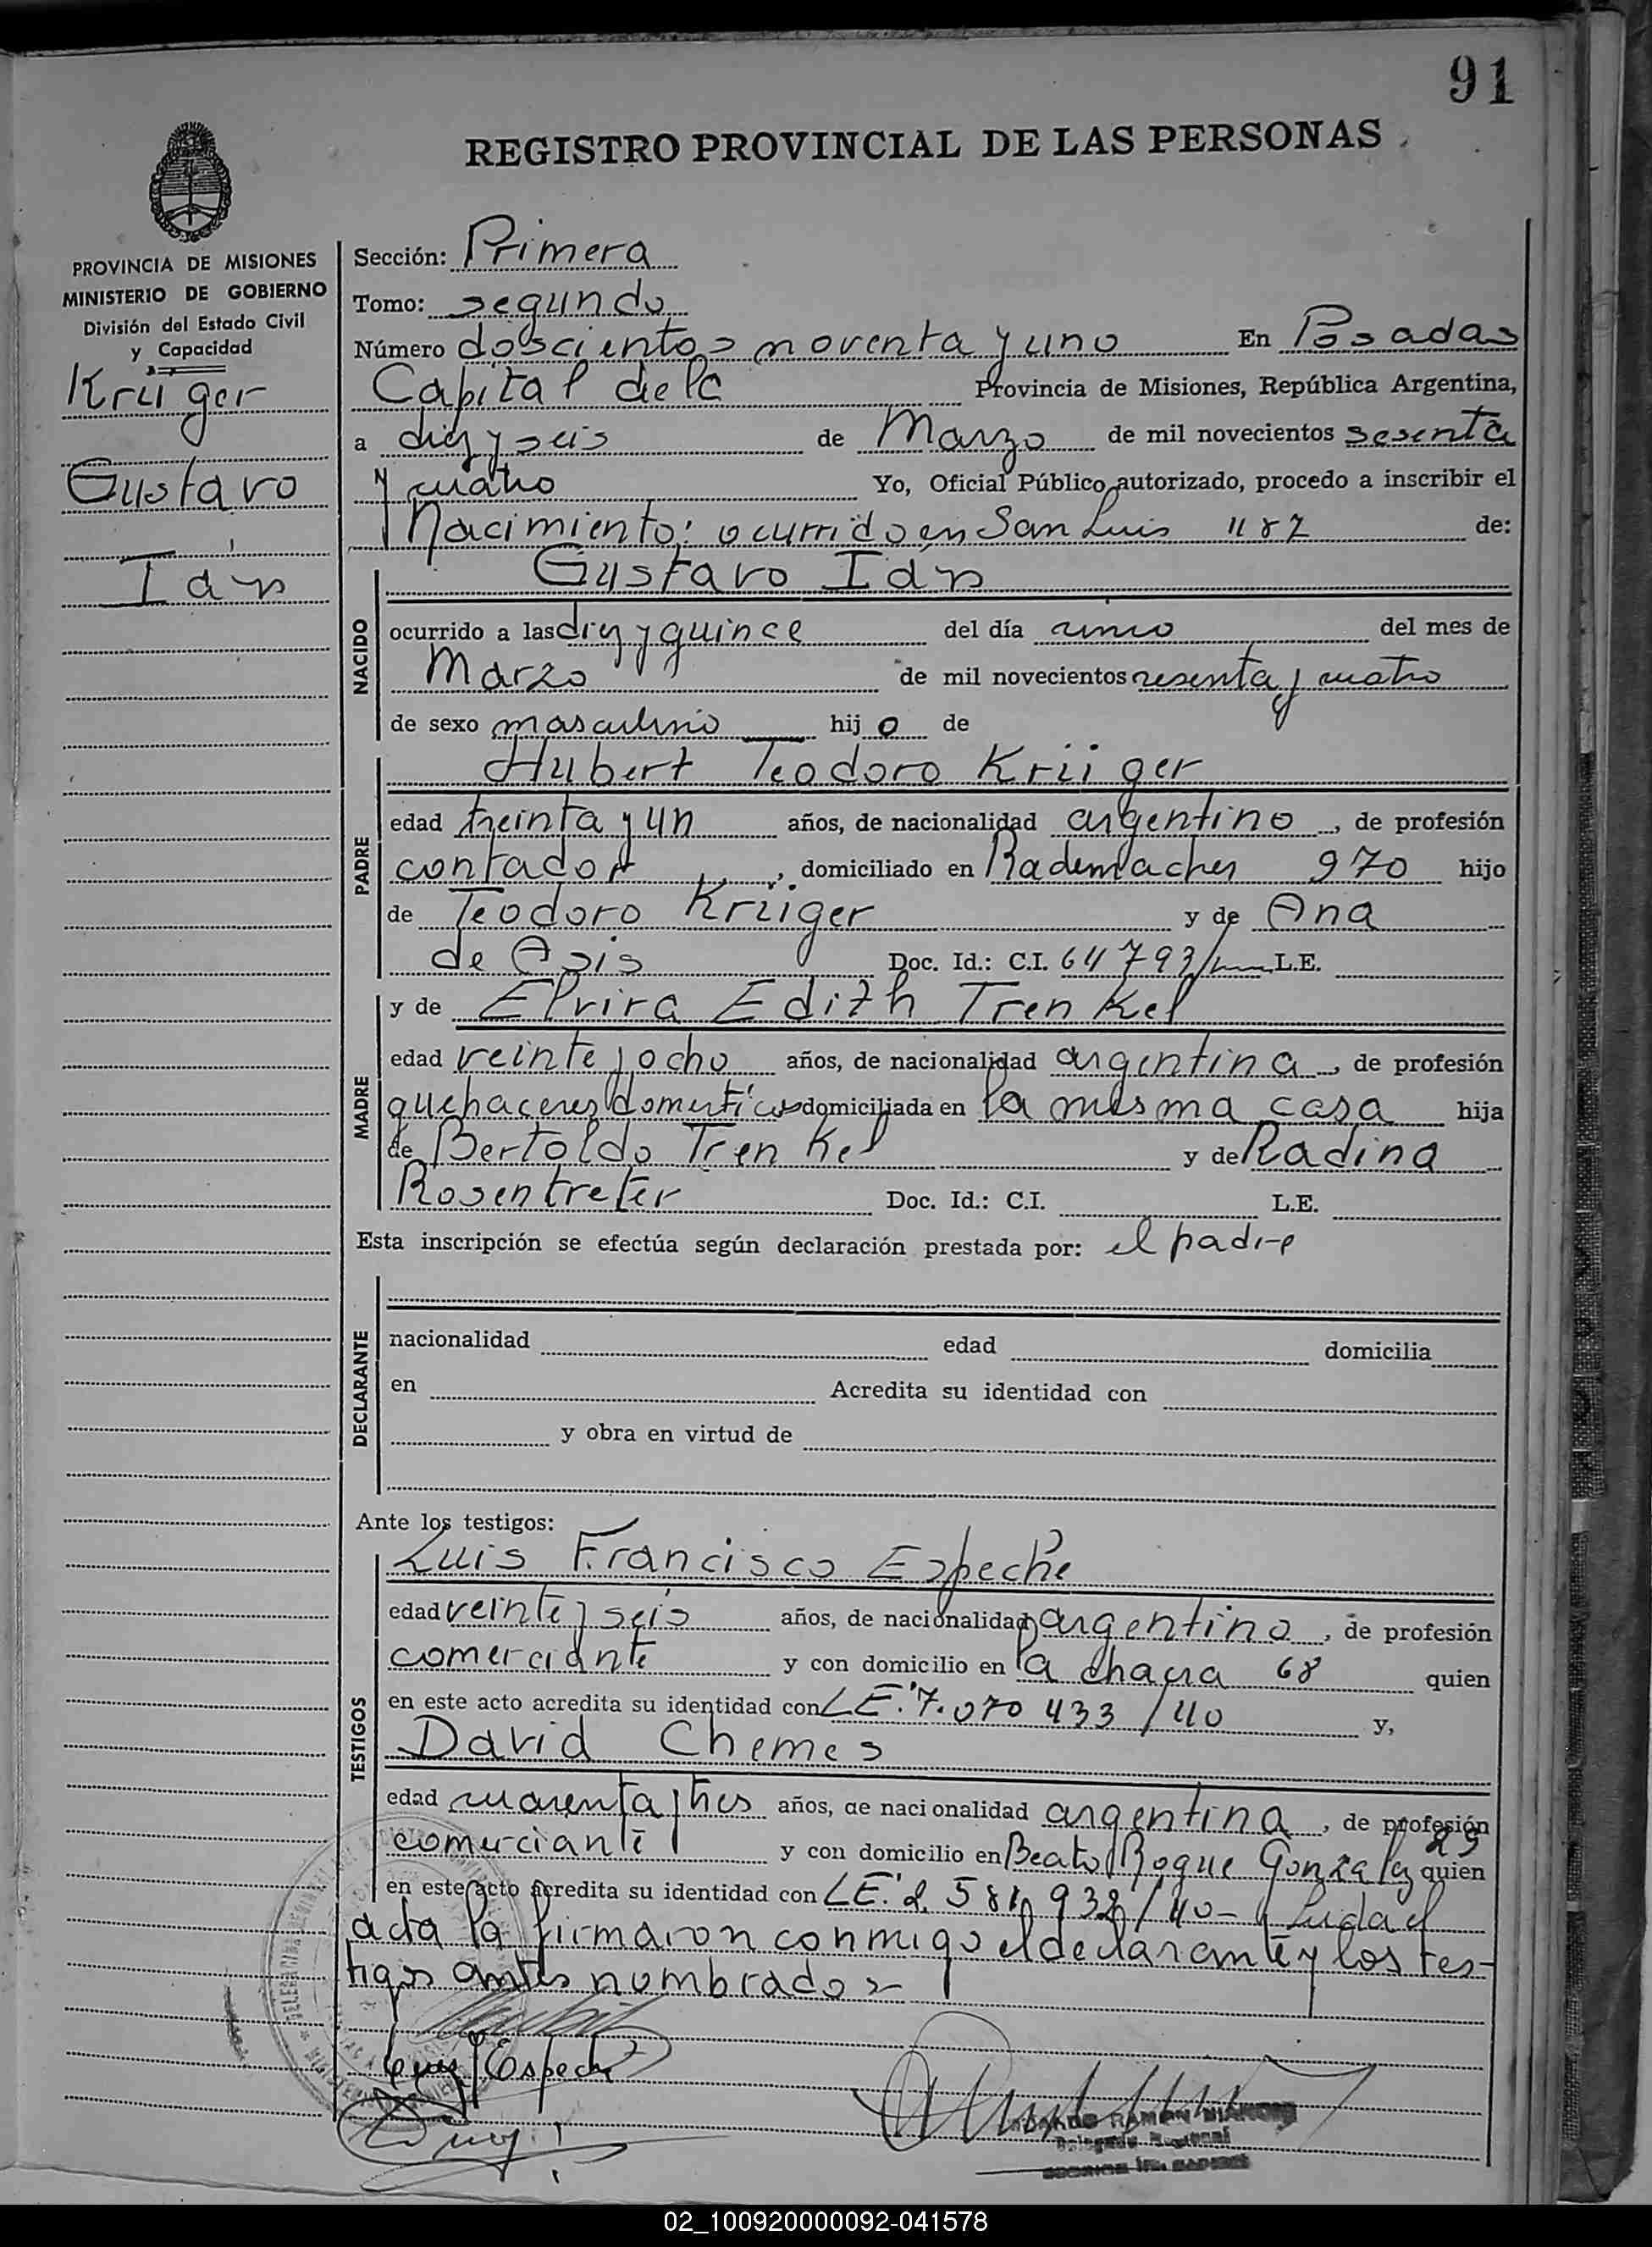 91
REGISTRO PROVINCIAL DE LAS PERSONAS
PROVINCIA DE MISIONES
MINISTERIO DE GOBIERNO
División del Estado Civil
y Capacidad
Krüger
Gustavo
Ian
Sección: Primera
Tomo: segundo
Número doscientos noventa y uno En Posadas
Capital de la Provincia de Misiones, República Argentina,
a diez y seis de Marzo de mil novecientos sesenta
y cuatro Yo, Oficial Público autorizado, procedo a inscribir el
Nacimiento: ocurrido en San Luis 1187 de:
NACIDO
Gustavo Ian
ocurrido a las diez y quince del día cinco del mes de
Marzo de mil novecientos sesenta y cuatro
de sexo masculino hijo de
PADRE
Hubert Teodoro Krüger
edad treinta y un años, de nacionalidad argentino, de profesión
contador, domiciliado en Rademacher 970 hijo
de Teodoro Krüger y de Ana
de Asis Doc. Id.: C.I. 64793 L.E.
MADRE
y de Elvira Edith Trenkel
edad veinte y ocho años, de nacionalidad argentina, de profesión
quehaceres domesticos domiciliada en la misma casa hija
de Bertoldo Trenkel y de Radina
Rosentreter Doc. Id.: C.I. L.E.
Esta inscripción se efectúa según declaración prestada por: el padre
DECLARANTE
nacionalidad edad domicilia
en Acredita su identidad con
y obra en virtud de
Ante los testigos:
TESTIGOS
Luis Francisco Espeche
edad veinte y seis años, de nacionalidad argentino, de profesión
comerciante y con domicilio en la chacra 68 quien
en este acto acredita su identidad con LE. 7.070433/40 y,
David Chemes
edad cuarenta y tres años, de nacionalidad argentina, de profesión
comerciante y con domicilio en Beato Roque Gonzalez 29 quien
en este acto acredita su identidad con LE. 2. 581 932/40- Leida el
acta la firmaron conmigo el declarante y los tes-
tigos antes nombrados-
Luis F Espeche
RAMON
Delegado Regional
02_100920000092-041578